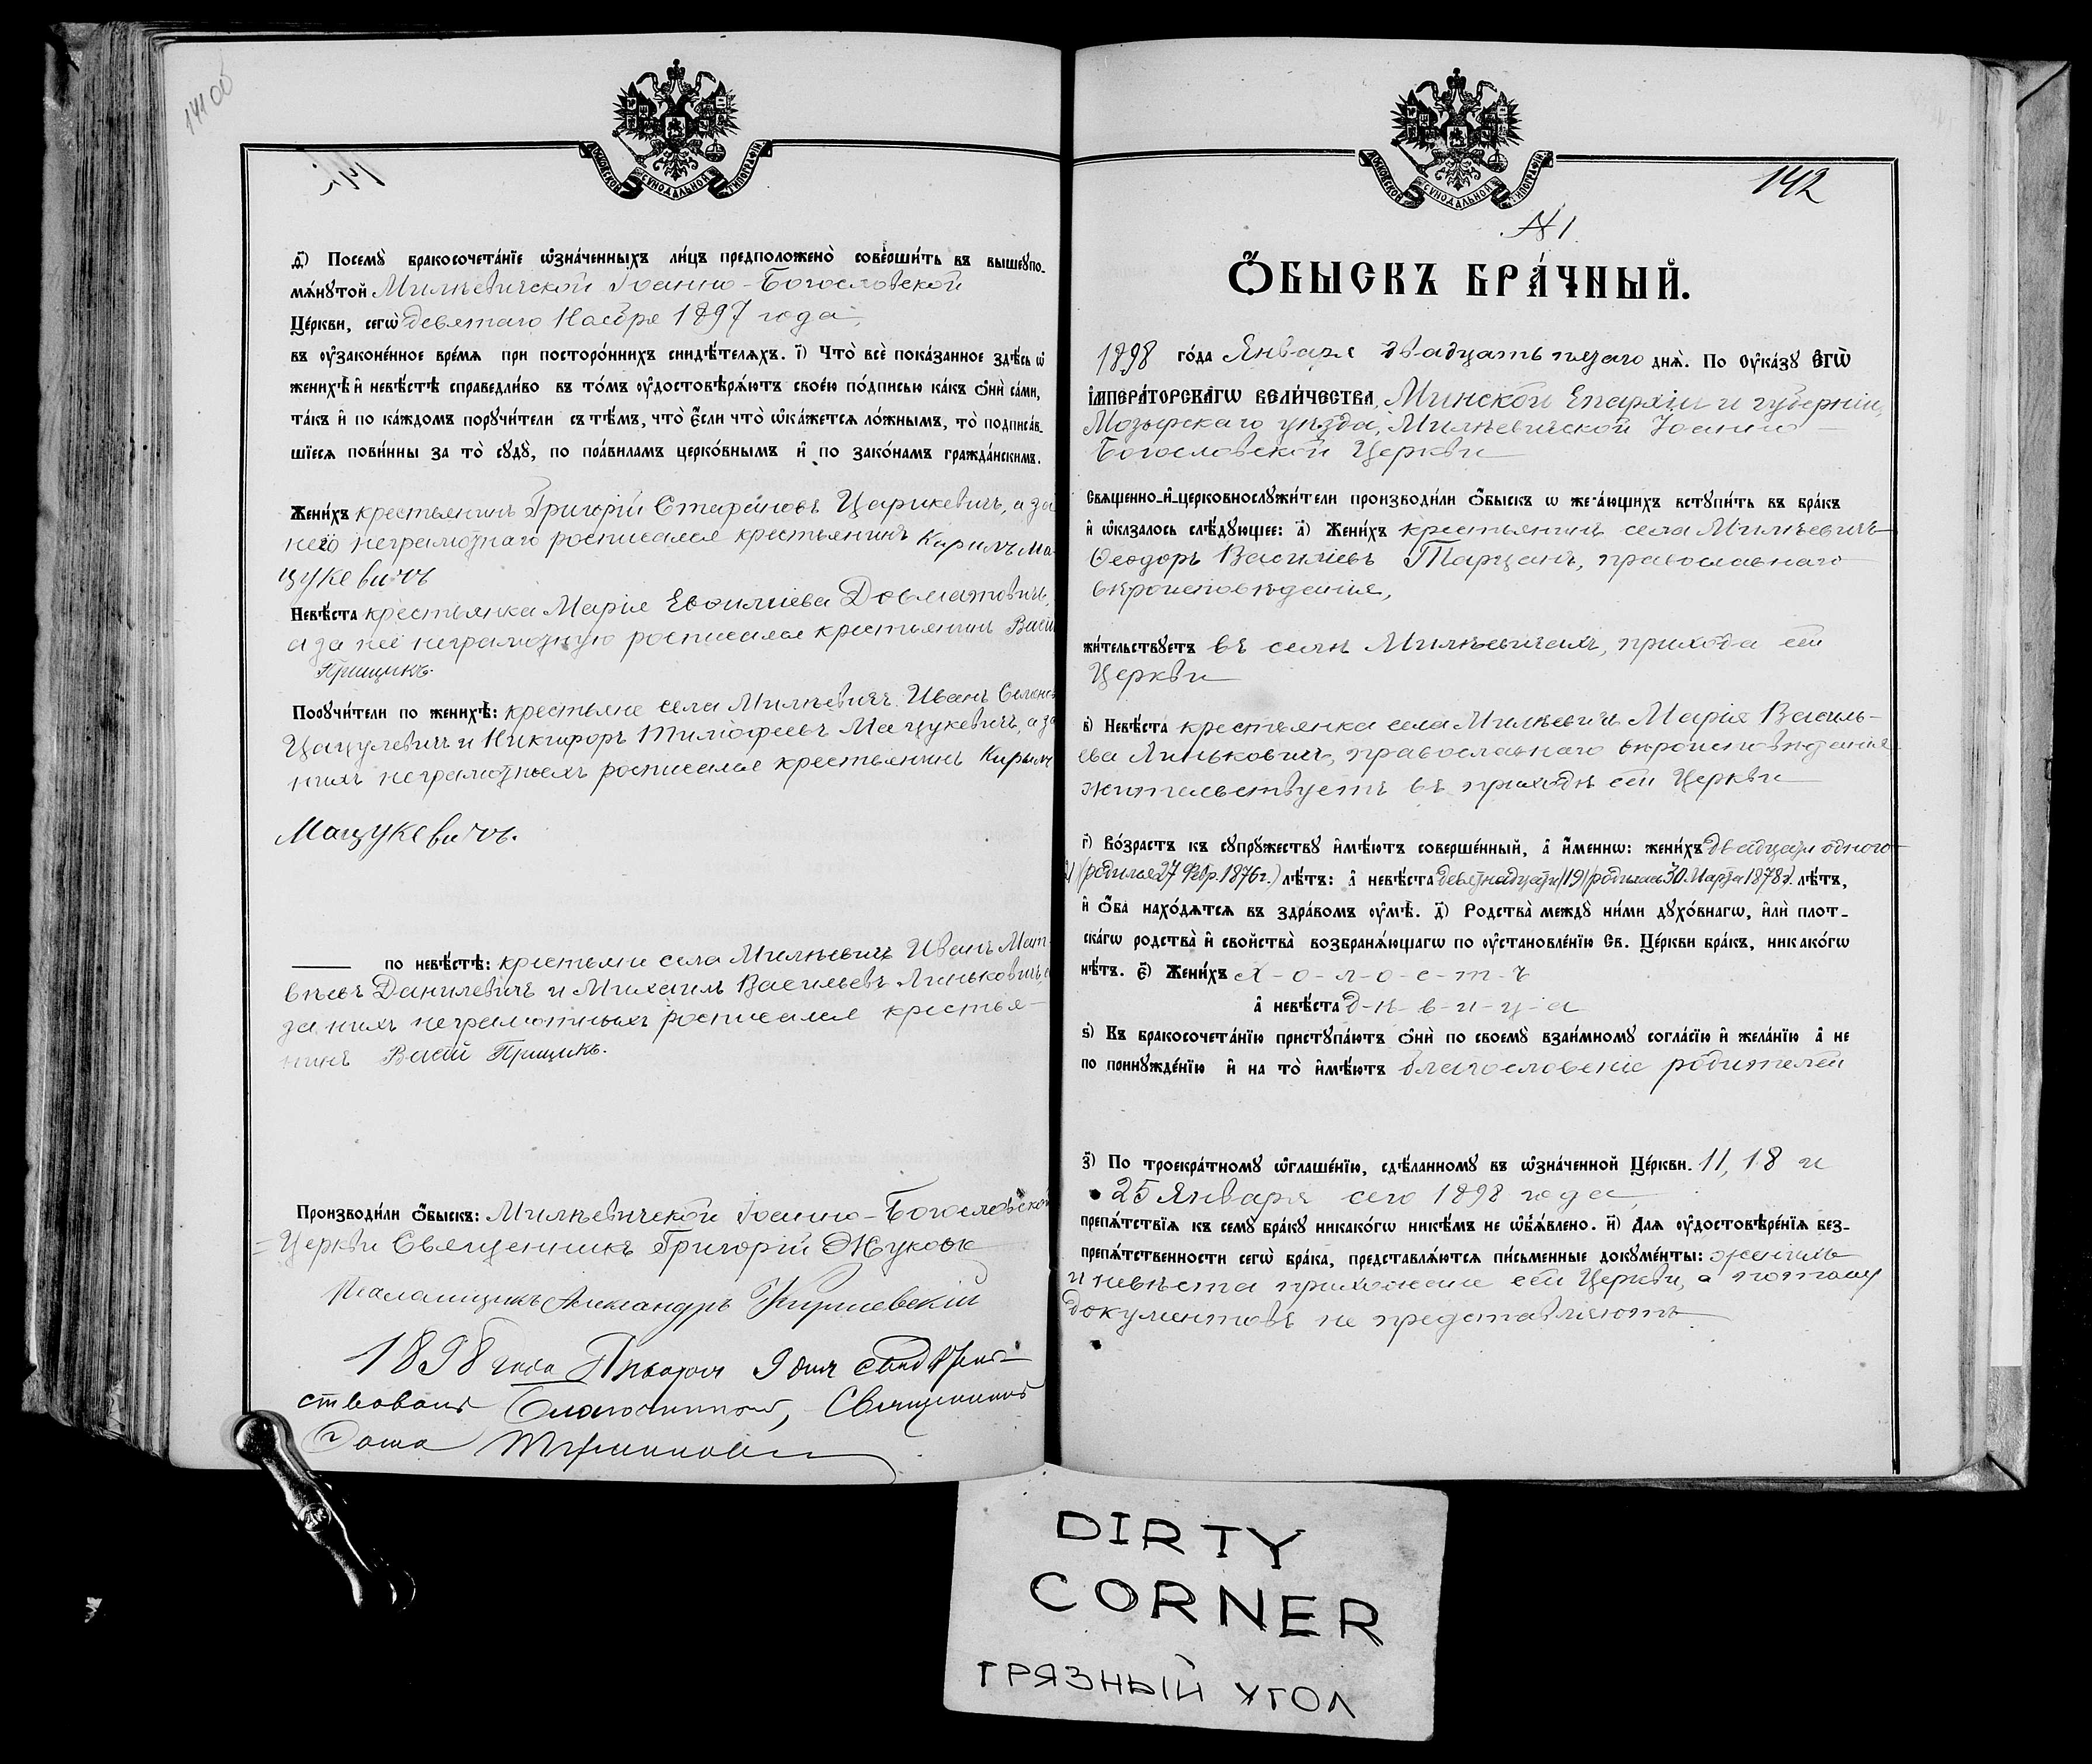 141 об
МОСКОВСКОЙ СѴНОДАЛЬНОЙ ТИПОГРАФІИ.
ѳ҃) Посемꙋ̀ бракосочета́нїе ѡ҆зна́ченныхъ ли́цъ предположено̀ соверши́ть въ вышеупо-
мѧ́нꙋтой Милѣвичской Іоанно-Богословской
Це́ркви, сегѡ̀ девятаго Ноября 1897 года,
въ ᲂу҆законе́нное вре́мѧ при посторо́ннихъ свидѣ́телѧхъ. і҃) Что̀ всѐ пока́занное здѣ́сь ѡ҆
женихѣ̀ и҆ невѣ́стѣ справедли́во въ то́мъ ᲂу҆достовѣрѧ́ютъ свое́ю по́дписью ка́къ ѻ҆нѝ са́ми,
та́къ и҆ по ка́ждомъ порꙋчи́тели съ тѣ́мъ, что̀ є҆́сли что̀ ѡ҆ка́жетсѧ ло́жнымъ, то̀ подписа́в-
шїесѧ пови́нны за то̀ сꙋдꙋ̀, по пра́виламъ церко́внымъ и҆ по зако́намъ гражда́нскимъ.
Жени́хъ крестьянинъ Григорій Стефановъ Царикевичъ, а за
него неграмотнаго росписался крестьянинъ Кирилъ Ма-
цукевичъ
Невѣ́ста крестьянка Марія Евоиміева Довматовичъ,
а за неё неграмотную росписался крестьянинъ Васи
Прищикъ.
Порꙋчи́тели по женихѣ̀: крестьяне села Милѣвичъ Иванъ Семено
Цацулевичъ и Никифоръ Тимофеевъ Мацукевичъ, а за
нихъ неграмотныхъ росписался крестьянинъ Кирылъ
Мацукевичъ.
по невѣ́стѣ: крестьяне села Милѣвичъ Иванъ Мат-
вѣевъ Данилевичъ и Михаилъ Васильевъ Линьковичъ, а
за нихъ неграмотныхъ росписался крестья-
нинъ Васій Прищикъ.
Производи́ли ѻ҆́быскъ: Милѣвичской Іоанно-Богословской
Церкви Священникъ Григорій Жуковъ
Псаломщикъ Александръ
1898 года Января 9 дня свидѣтель-
ствовалъ Благочинный, Священникъ
142
МОСКОВСКОЙ СѴНОДАЛЬНОЙ ТИПОГРАФІИ.
№ 1.
Ѻ҆́БЫСКЪ БРА́ЧНЫЙ.
1898 го́да Января двадцать пятаго днѧ̀. По ᲂу҆ка́зꙋ Є҆ГѠ̀
І҆МПЕРА́ТОРСКАГѠ ВЕЛИ́ЧЕСТВА, Минской Епархіи и губерніи,
Мозырскаго уѣзда, Милѣвичской Іоанно-
Богословской Церкви
Свѧщенно-и҆-церковнослꙋжи́тели производи́ли ѻ҆́быскъ ѡ же-а́ющихъ встꙋпи́ть въ бра́къ
и҆ ѡ҆казалось слѣ́дꙋющее: а҃) Жени́хъ крестьянинъ села Милѣевичъ
Ѳеодоръ Василіевъ Тарцанъ, православнаго
вѣроисповѣданія,
жи́тельствꙋетъ въ селѣ Милѣвичахъ, прихода сей
Церкви
в҃) Невѣ́ста крестьянка села Милѣевичъ Марія Василь-
ева Линьковичъ, православнаго вѣроисповѣданія
жительствуетъ въ приходѣ сей Церкви
г҃) Во́зрастъ къ сꙋпрꙋ́жествꙋ и҆мѣ́ютъ соверше́нный, а҆ и҆́меннѡ: жени́хъ двадцати одного
21 (родился 27 Февр. 1876 г.) лѣ́тъ: а҆ невѣ́ста девятнадцати (19) (родилась 30 Марта 1878 г. лѣ́тъ,
и҆ ѻ҆́ба нахо́дѧтсѧ въ здра́вомъ ᲂу҆мѣ̀. д҃) Родства̀ междꙋ̀ ни́ми дꙋхо́внагѡ, и҆лѝ плот-
ска́гѡ родства̀ и҆ сво́йства̀ возбранѧ́ющагѡ по ᲂу҆становле́нїю Св. Це́ркви бра́къ, никако́гѡ
нѣ́тъ. є҃) Жени́хъ х-о-л-о-с-т-ъ
а҆ невѣ́ста д-ѣ-в-и-ц-а
ѕ҃) Къ бракосочета́нїю пристꙋпа́ютъ ѻ҆нѝ по своемꙋ̀ взаи́мномꙋ согла́сїю и҆ жела́нїю а҆ не
по принꙋжде́нїю и҆ на то̀ и҆мѣ́ютъ благословеніе родителей
з҃) По троекра́тномꙋ ѡ҆глаше́нїю, сдѣ́ланномꙋ въ ѡ҆зна́ченной Це́ркви. 11, 18 и
25 Января сего 1898 года
препѧ́тствїѧ къ семꙋ бра́кꙋ никако́гѡ никѣ́мъ не ѡ҆б̾ѧ́влено. и҃) Длѧ ᲂу҆достовѣре́нїѧ без-
препѧ́тственности сегѡ̀ бра́ка, представлѧ́ютсѧ пи́сьменные докꙋме́нты: женихъ
и невѣста прихожане сей Церкви, а потому
документовъ не представляютъ.
DIRTY
CORNER
ГРЯЗНЫЙ УГОЛ